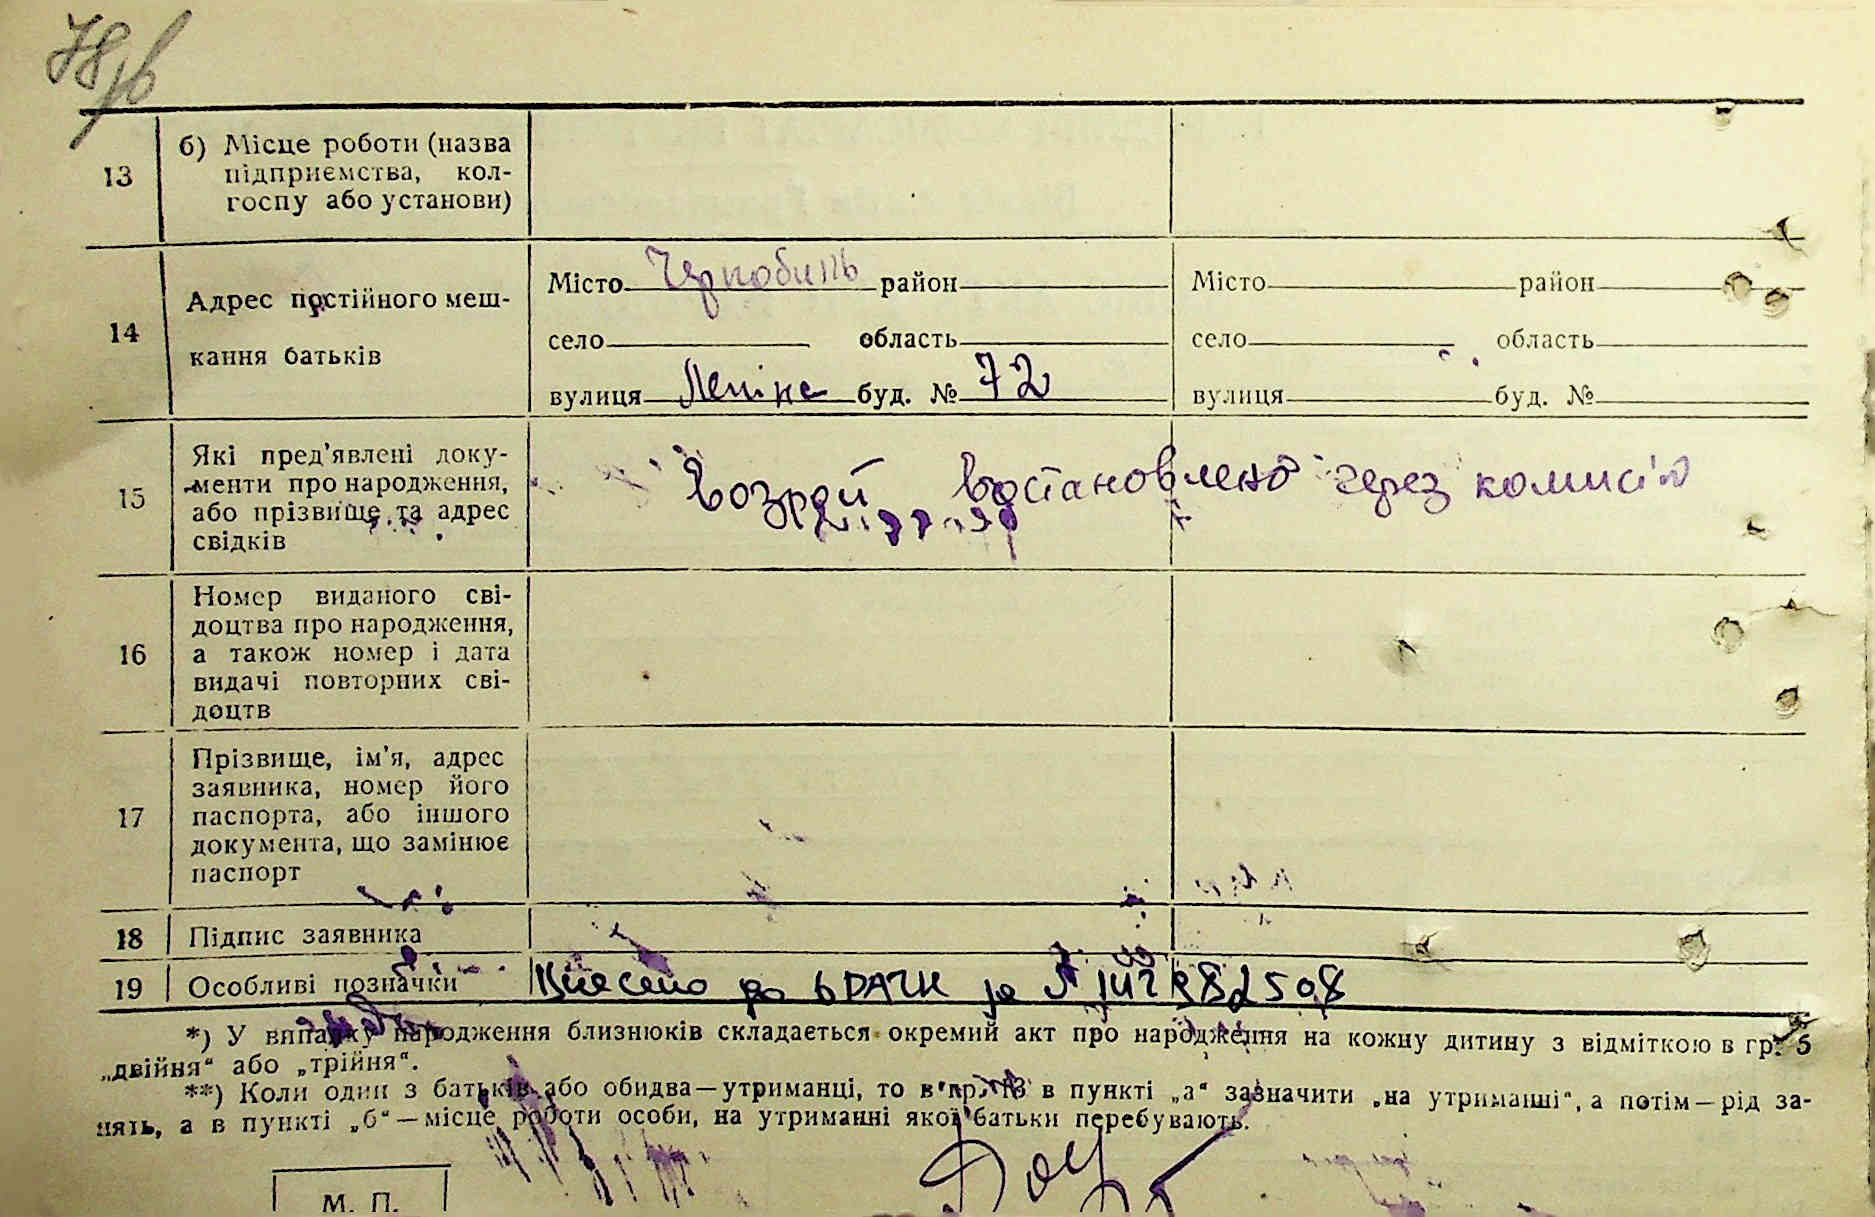 78зв
13
б) Місце роботи (назва
підприємства, кол-
госпу або установи)
14
Адрес постійного меш-
кання батьків
Місто Чернобиль район
село область
вулиця Леніна буд. № 72
Місто район
село область
вулиця буд. №
15
Які пред'явлені доку-
менти про народження,
або прізвище та адрес
свідків
Возраст востановлено через комисію
16
Номер виданого сві-
доцтва про народження,
а також номер і дата
видачі повторних сві-
доцтв
17
Прізвище, ім'я, адрес
заявника, номер його
паспорта, або іншого
документа, що замінює
паспорт
18
Підпис заявника
19
Особливі позначки
Внесено до ДРАЦС за №
*) У випадку народження близнюків складається окремий акт про народження на кожну дитину з відміткою в гр. 5
„двійня“ або „трійня“.
**) Коли один з батьків або обидва—утриманці, то в гр. 13 в пункті „а“ зазначити „на утриманні“, а потім—рід за-
нять, а в пункті „б“—місце роботи особи, на утриманні якої батьки перебувають.
М. П.